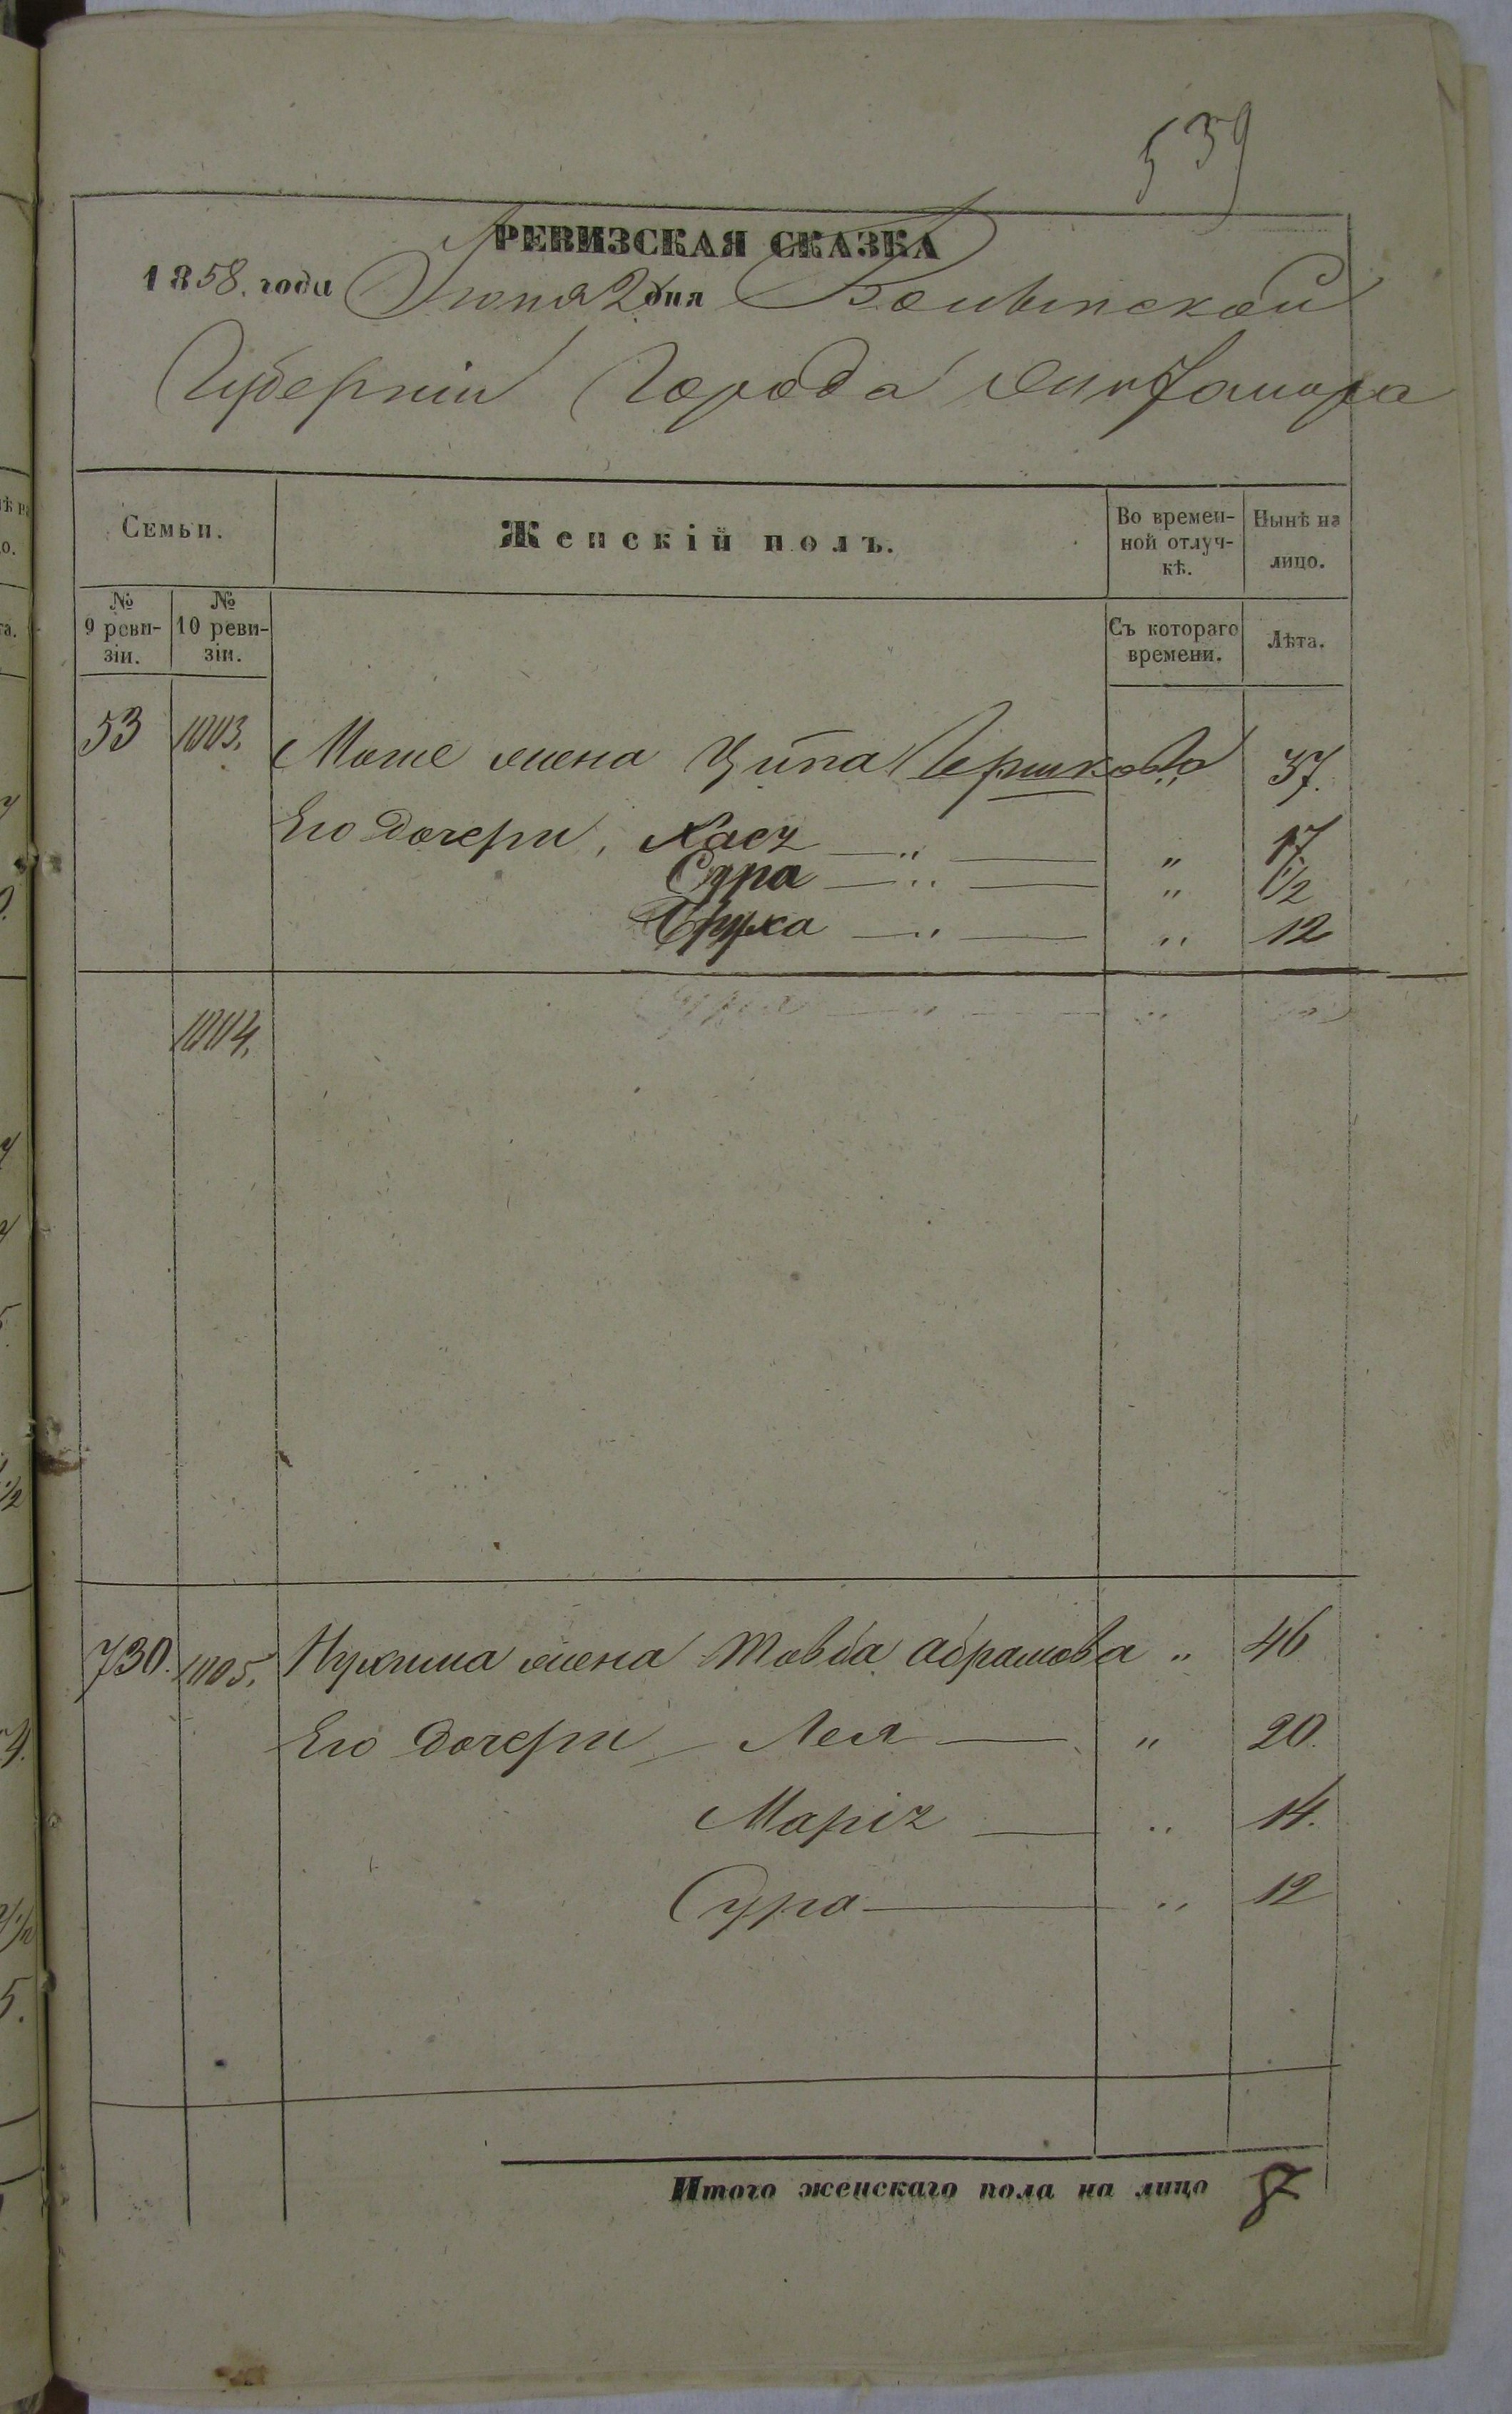 539
РЕВИЗСКАЯ СКАЗКА
1858. года Іюня 2 дня Волынской
Губерніи Города Житомира
Семьи.
Женскій полъ.
Во времен-
ной отлуч-
кѣ.
Нынѣ на
лицо.
№
9 реви-
зіи.
№
10 реви-
зіи.
Съ котораго
времени.
Лѣта.
53 1003. Моше жена Ципа Гершкова " 37.
Его дочери, Хася — " — " 17
Сура — " — " 1/2
Бруха — " — " 12
1004.
730. 1005. Нухима жена Товба Абрамова " 46
Его дочери Лея — " 20.
Марія — " 14.
Сура — " 12
Итого женскаго пола на лицо 8